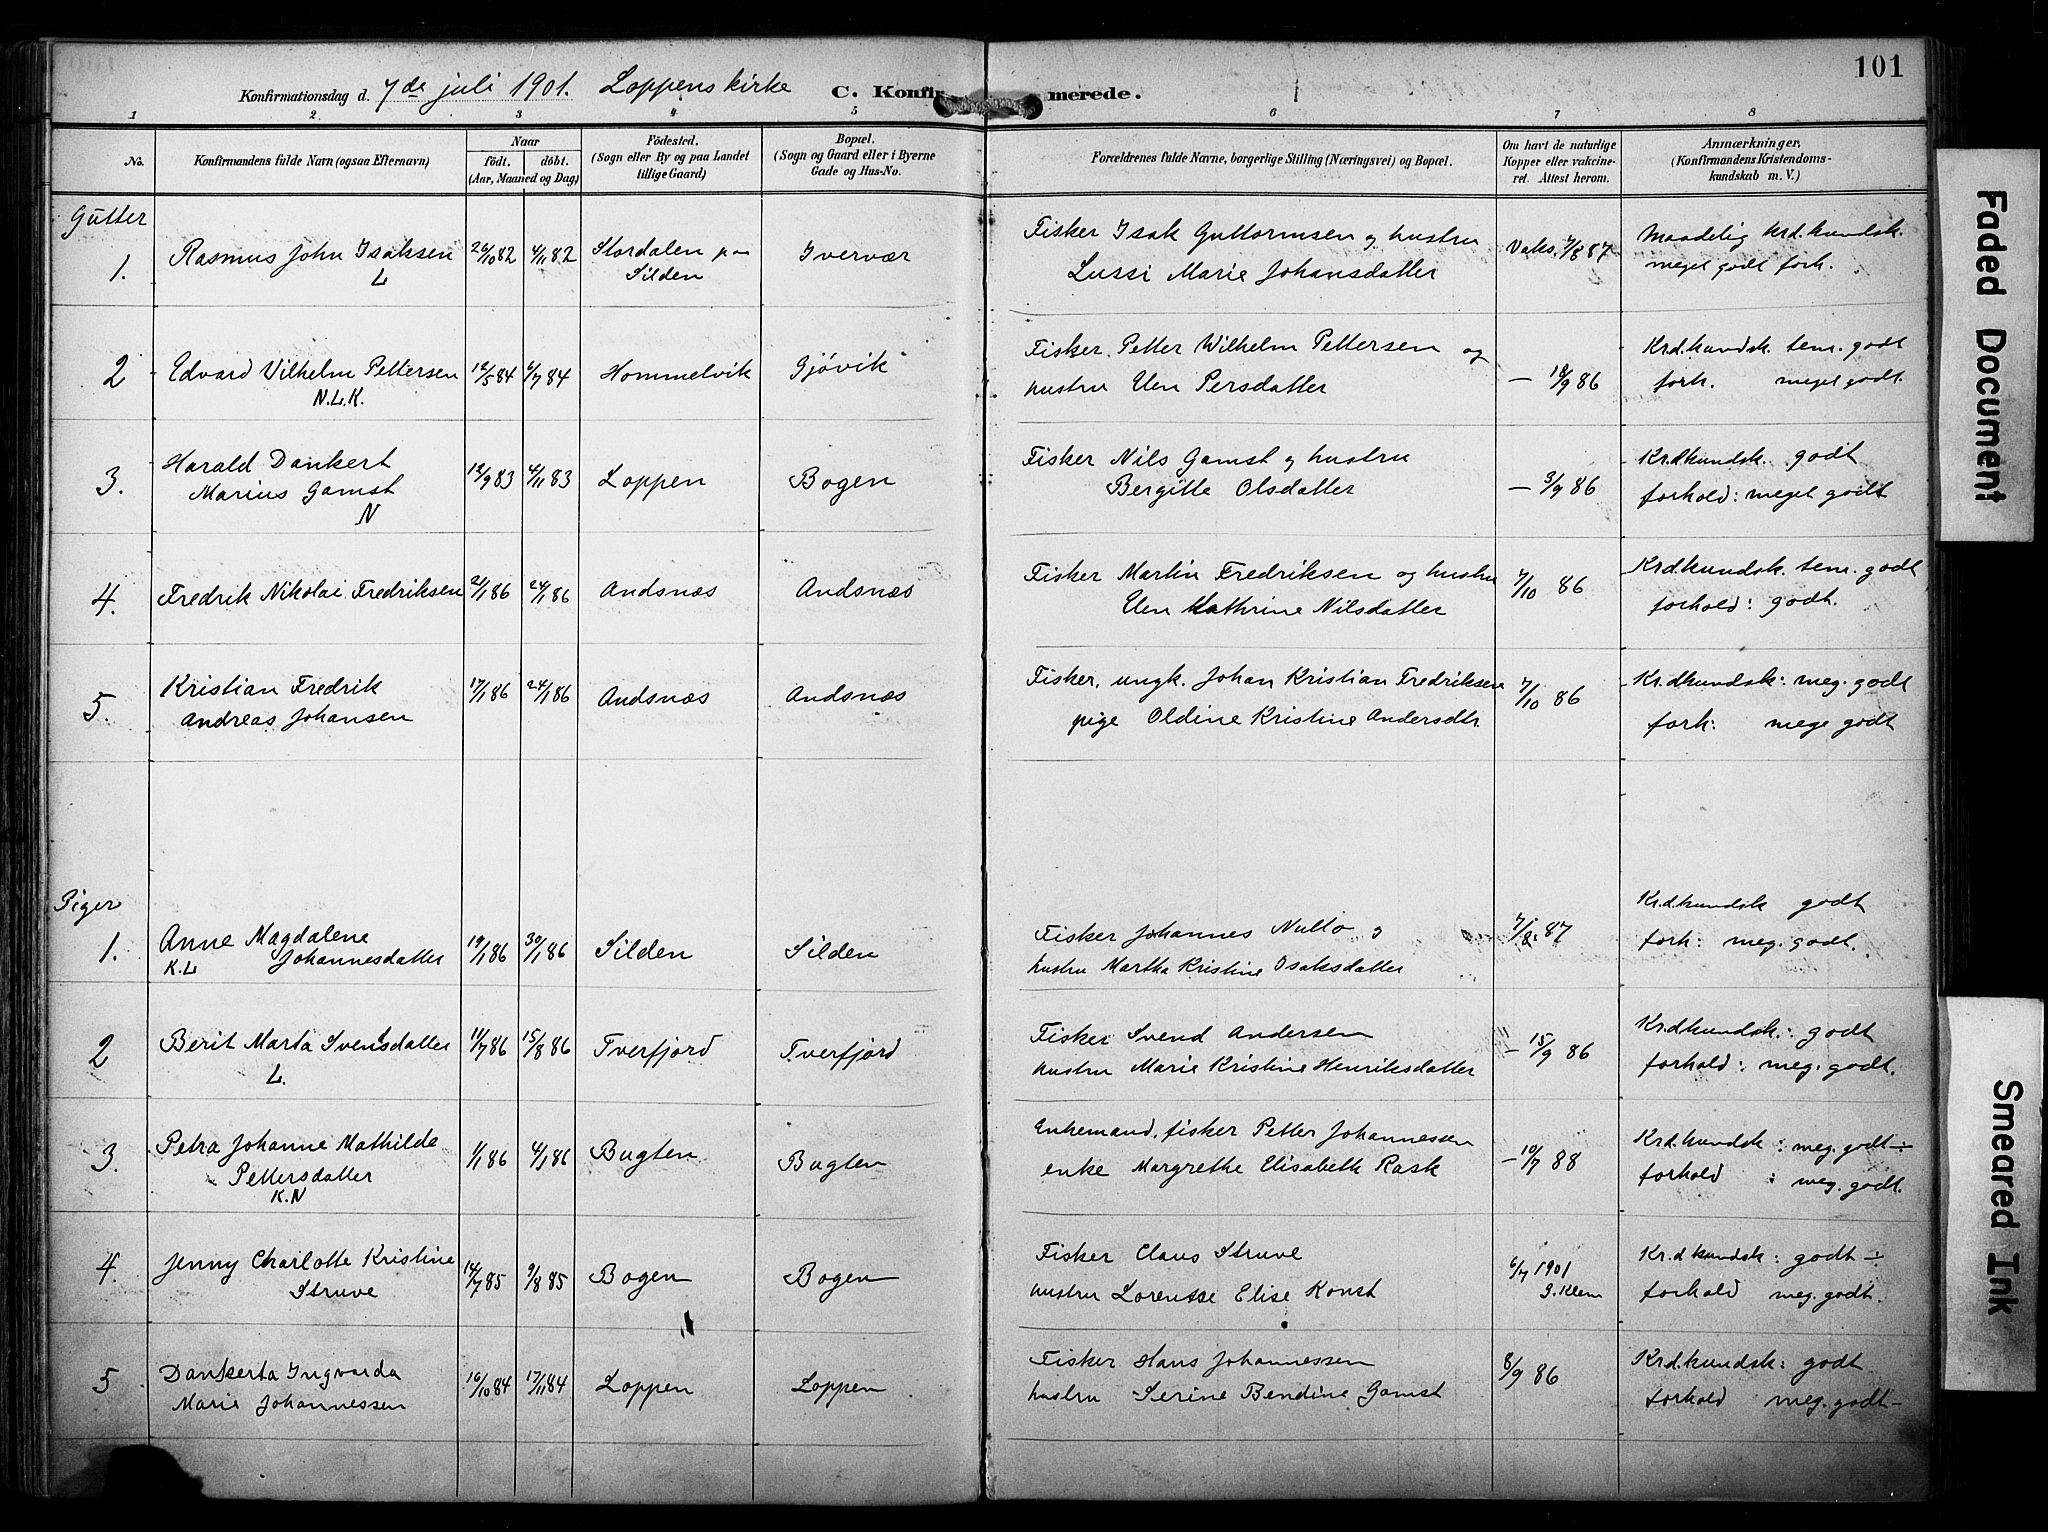 101
Konfirmationsdag d. 7de juli 1901. Loppens kirke C. Konfirmerede.
1 2 3 4 5 6 7 8
No. Konfirmandens fulde Navn (ogsaa Efternavn) Naar Födested. Bopæl. Forældrenes fulde Navne, borgerlige Stilling (Næringsvei) og Bopæl. Om havt de naturlige Anmærkninger.
födt. döbt. (Sogn eller By og paa Landet (Sogn og Gaard eller i Byerne Kopper eller vakcine- (Konfirmandens Kristendoms-
(Aar, Maaned og Dag) tillige Gaard) Gade og Hus-No. ret. Attest herom. kundskab m. V.)
Gutter
1. Rasmus John Isaksen 26/10 82 4/11 82 Stordalen paa Ivervær Fisker Isak Guttormsen og hustru Vaks. 7/8 87 Maadelig krd.kundsk.
L Silden Lussi Marie Johansdatter meget godt forh.
2 Edvard Vilhelm Pettersen 12/5 84 6/7 84 Hommelvik Gjövik Fisker Petter Wilhelm Pettersen og — 18/9 86 Krd.kundsk. tem. godt
N.L.K. hustru Elen Persdatter forh. meget godt.
3. Harald Dankert 12/9 83 4/11 83 Loppen Bogen Fisker Nils Gamst og hustru — 3/9 86 Kr.dkundsk. godt
Marius Gamst Bergitte Olsdatter forhold: meget godt
N
4. Fredrik Nikolai Fredriksen 21/1 86 24/1 86 Andsnæs Andsnæs Fisker Martin Fredriksen og hustru 7/10 86 Krd.kundsk. tem. godt
Elen Kathrine Nilsdatter forhold: godt.
5. Kristian Fredrik 17/1 86 24/1 86 Andsnæs Andsnæs Fisker, ungk. Johan Kristian Fredriksen 7/10 86 Kr.dkundsk: meg. godt
Andreas Johansen pige Oldine Kristine Andersdtr. forh: mege godt
Piger
1. Anne Magdalene 19/1 86 30/1 86 Silden Silden Fisker Johannes Nutto og 7/8 87 Kr.d.kundsk godt
K.L Johannesdatter hustru Martha Kristine Isaksdatter forh: meg. godt.
2 Berit Marta Svensdatter 11/7 86 15/8 86 Tverfjord Tverfjord Fisker Svend Andersen — 15/9 86 Kr.dkundsk: godt
L. hustru Marie Kristine Henriksdatter forhold: meg. godt.
3. Petra Johanne Mathilde 1/1 86 4/1 86 Bugten Bugten Enkemand, fisker Petter Johannessen — 10/7 88 Kr.d.kundsk: meg. godt ÷
Pettersdatter enke Margrethe Elisabeth Rask forhold : meg. godt.
K.N
4. Jenny Charlotte Kristine 14/7 85 9/8 85 Bogen Bogen Fisker Claus Struve 6/7 1901 Kr.d kundsk: godt ÷
Struve hustru Lorentse Elise Konst J. Klem forhold meg. godt.
5 Dankerta Ingvarda 16/10 84 17/11 84 Loppen Loppen Fisker Hans Johannessen 8/9 86 Kr.d.kundsk: godt
Marie Johannessen hustru Serine Bendine Gamst forhold meg. godt —
Faded Document
Smeared Ink